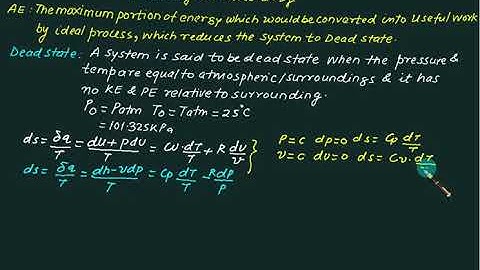 AE: The maximum portion of energy which would be converted into useful work
by ideal process, which reduces the system to Dead state.
Dead state: A system is said to be dead state when the pressure &
temp are equal to atmospheric/surroundings & it has
no KE & PE relative to surrounding.
P₀ = Patm T₀ = Tatm = 25°C
= 101.325 kPa
ds = δq/T = du + pdv/T = Cv · dT/T + R dv/v } P = c dp = 0 ds = Cp dT/T
v = c dv = 0 ds = Cv · dT
ds = δq/T = dh - vdp/T = Cp dT/T - R dp/p